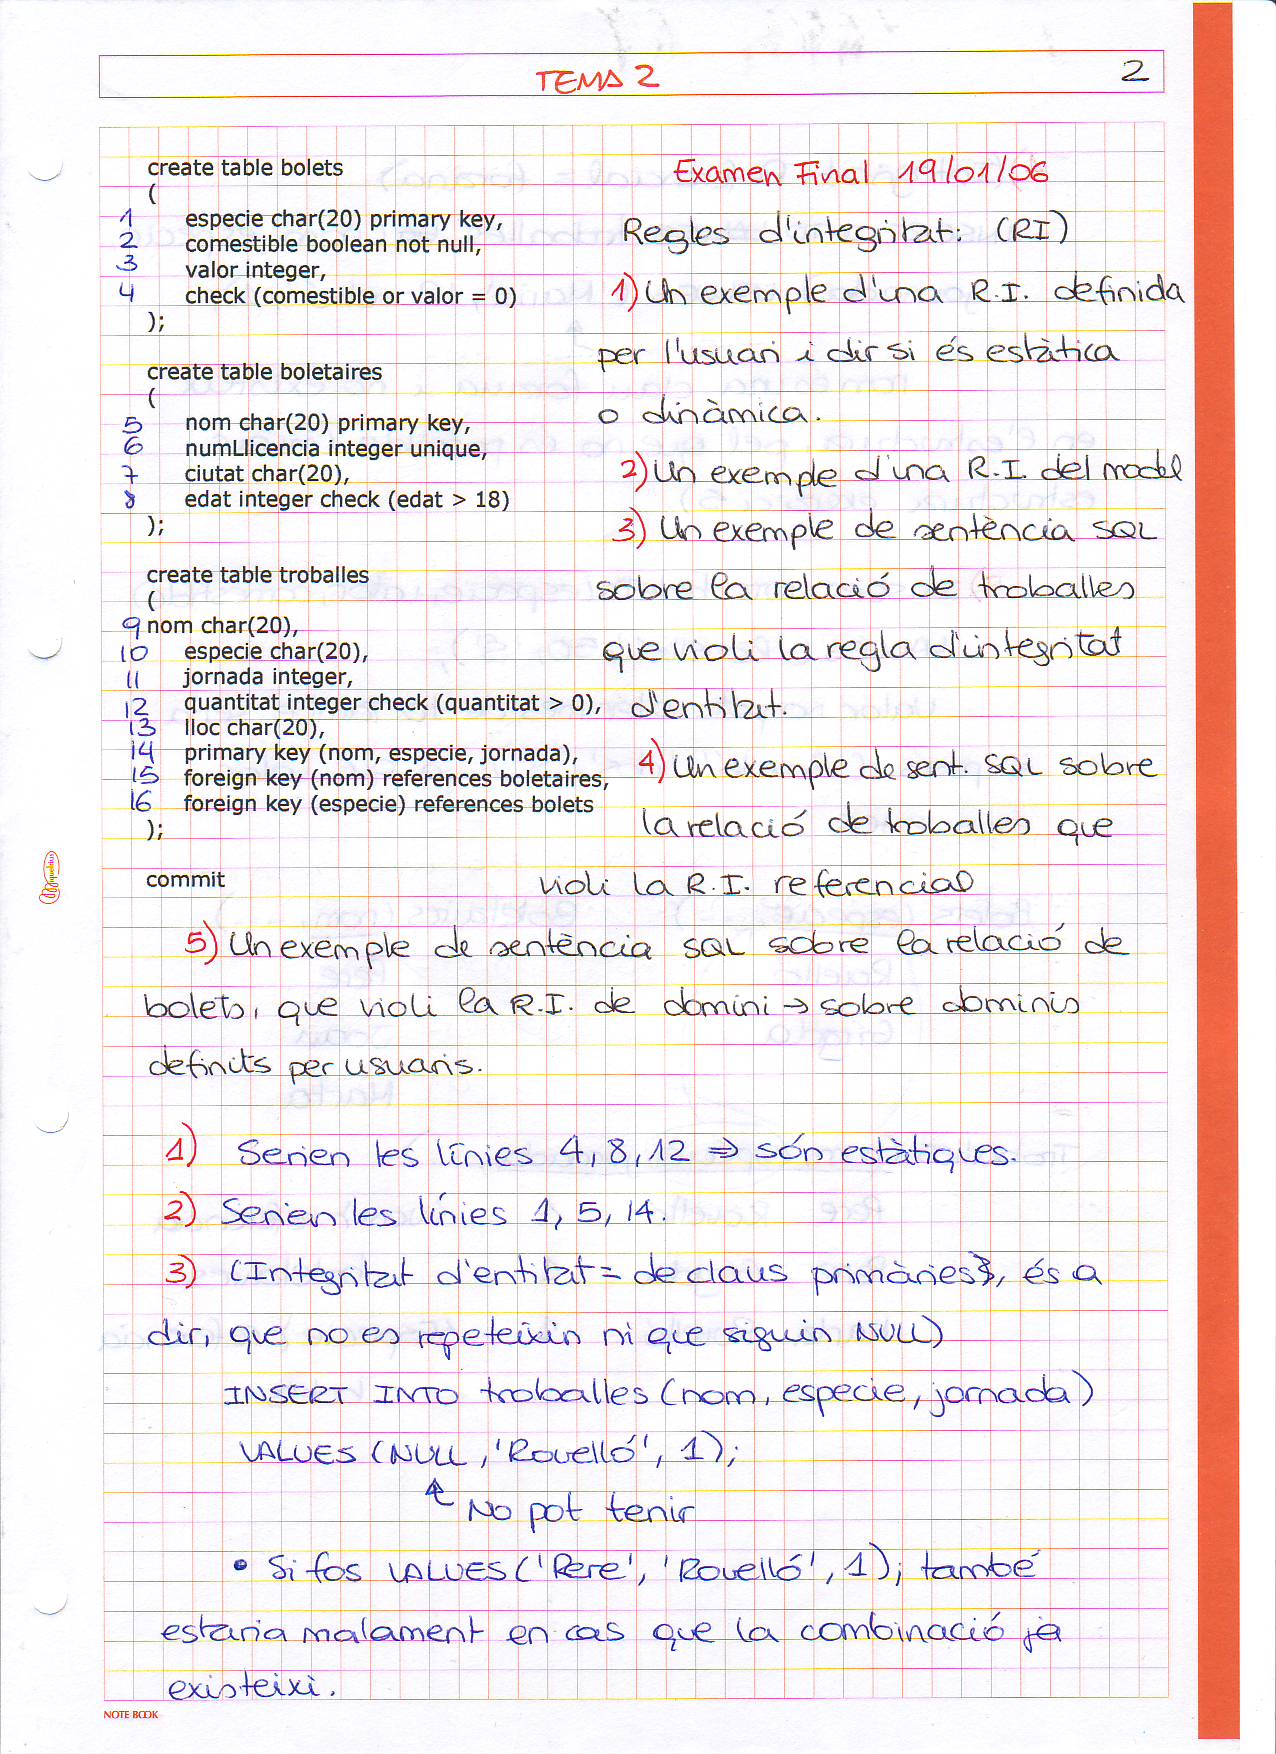 TEMA 2
2
create table bolets
(
1 especie char(20) primary key,
2 comestible boolean not null,
3 valor integer,
4 check (comestible or valor = 0)
);
create table boletaires
(
5 nom char(20) primary key,
6 numLlicencia integer unique,
7 ciutat char(20),
8 edat integer check (edat > 18)
);
create table troballes
(
9 nom char(20),
10 especie char(20),
11 jornada integer,
12 quantitat integer check (quantitat > 0),
13 lloc char(20),
14 primary key (nom, especie, jornada),
15 foreign key (nom) references boletaires,
16 foreign key (especie) references bolets
);
commit
Examen Final 19/01/06
Regles d'integritat: (RI)
1) Un exemple d'una R.I. definida
per l'usuari i dir si és estàtica
o dinàmica.
2) Un exemple d'una R.I. del model
3) Un exemple de sentència SQL
sobre la relació de troballes
que violi la regla d'integritat
d'entitat.
4) Un exemple de sent. SQL sobre
la relació de troballes que
violi la R.I. referencial
5) Un exemple de sentència SQL sobre la relació de
bolets, que violi la R.I. de domini → sobre dominis
definits per usuaris.
1) Serien les línies 4, 8, 12 ⇒ són estàtiques.
2) Serien les línies 1, 5, 14.
3) (Integritat d'entitat = de claus primàries, és a
dir, que no es repeteixin ni que siguin NULL)
INSERT INTO troballes (nom, especie, jornada)
VALUES (NULL, 'Rovelló', 1);
↑ No pot tenir
• Si fos VALUES ('Pere', 'Rovelló', 1); també
estaria malament en cas que la combinació ja
existeixi.
NOTE BOOK